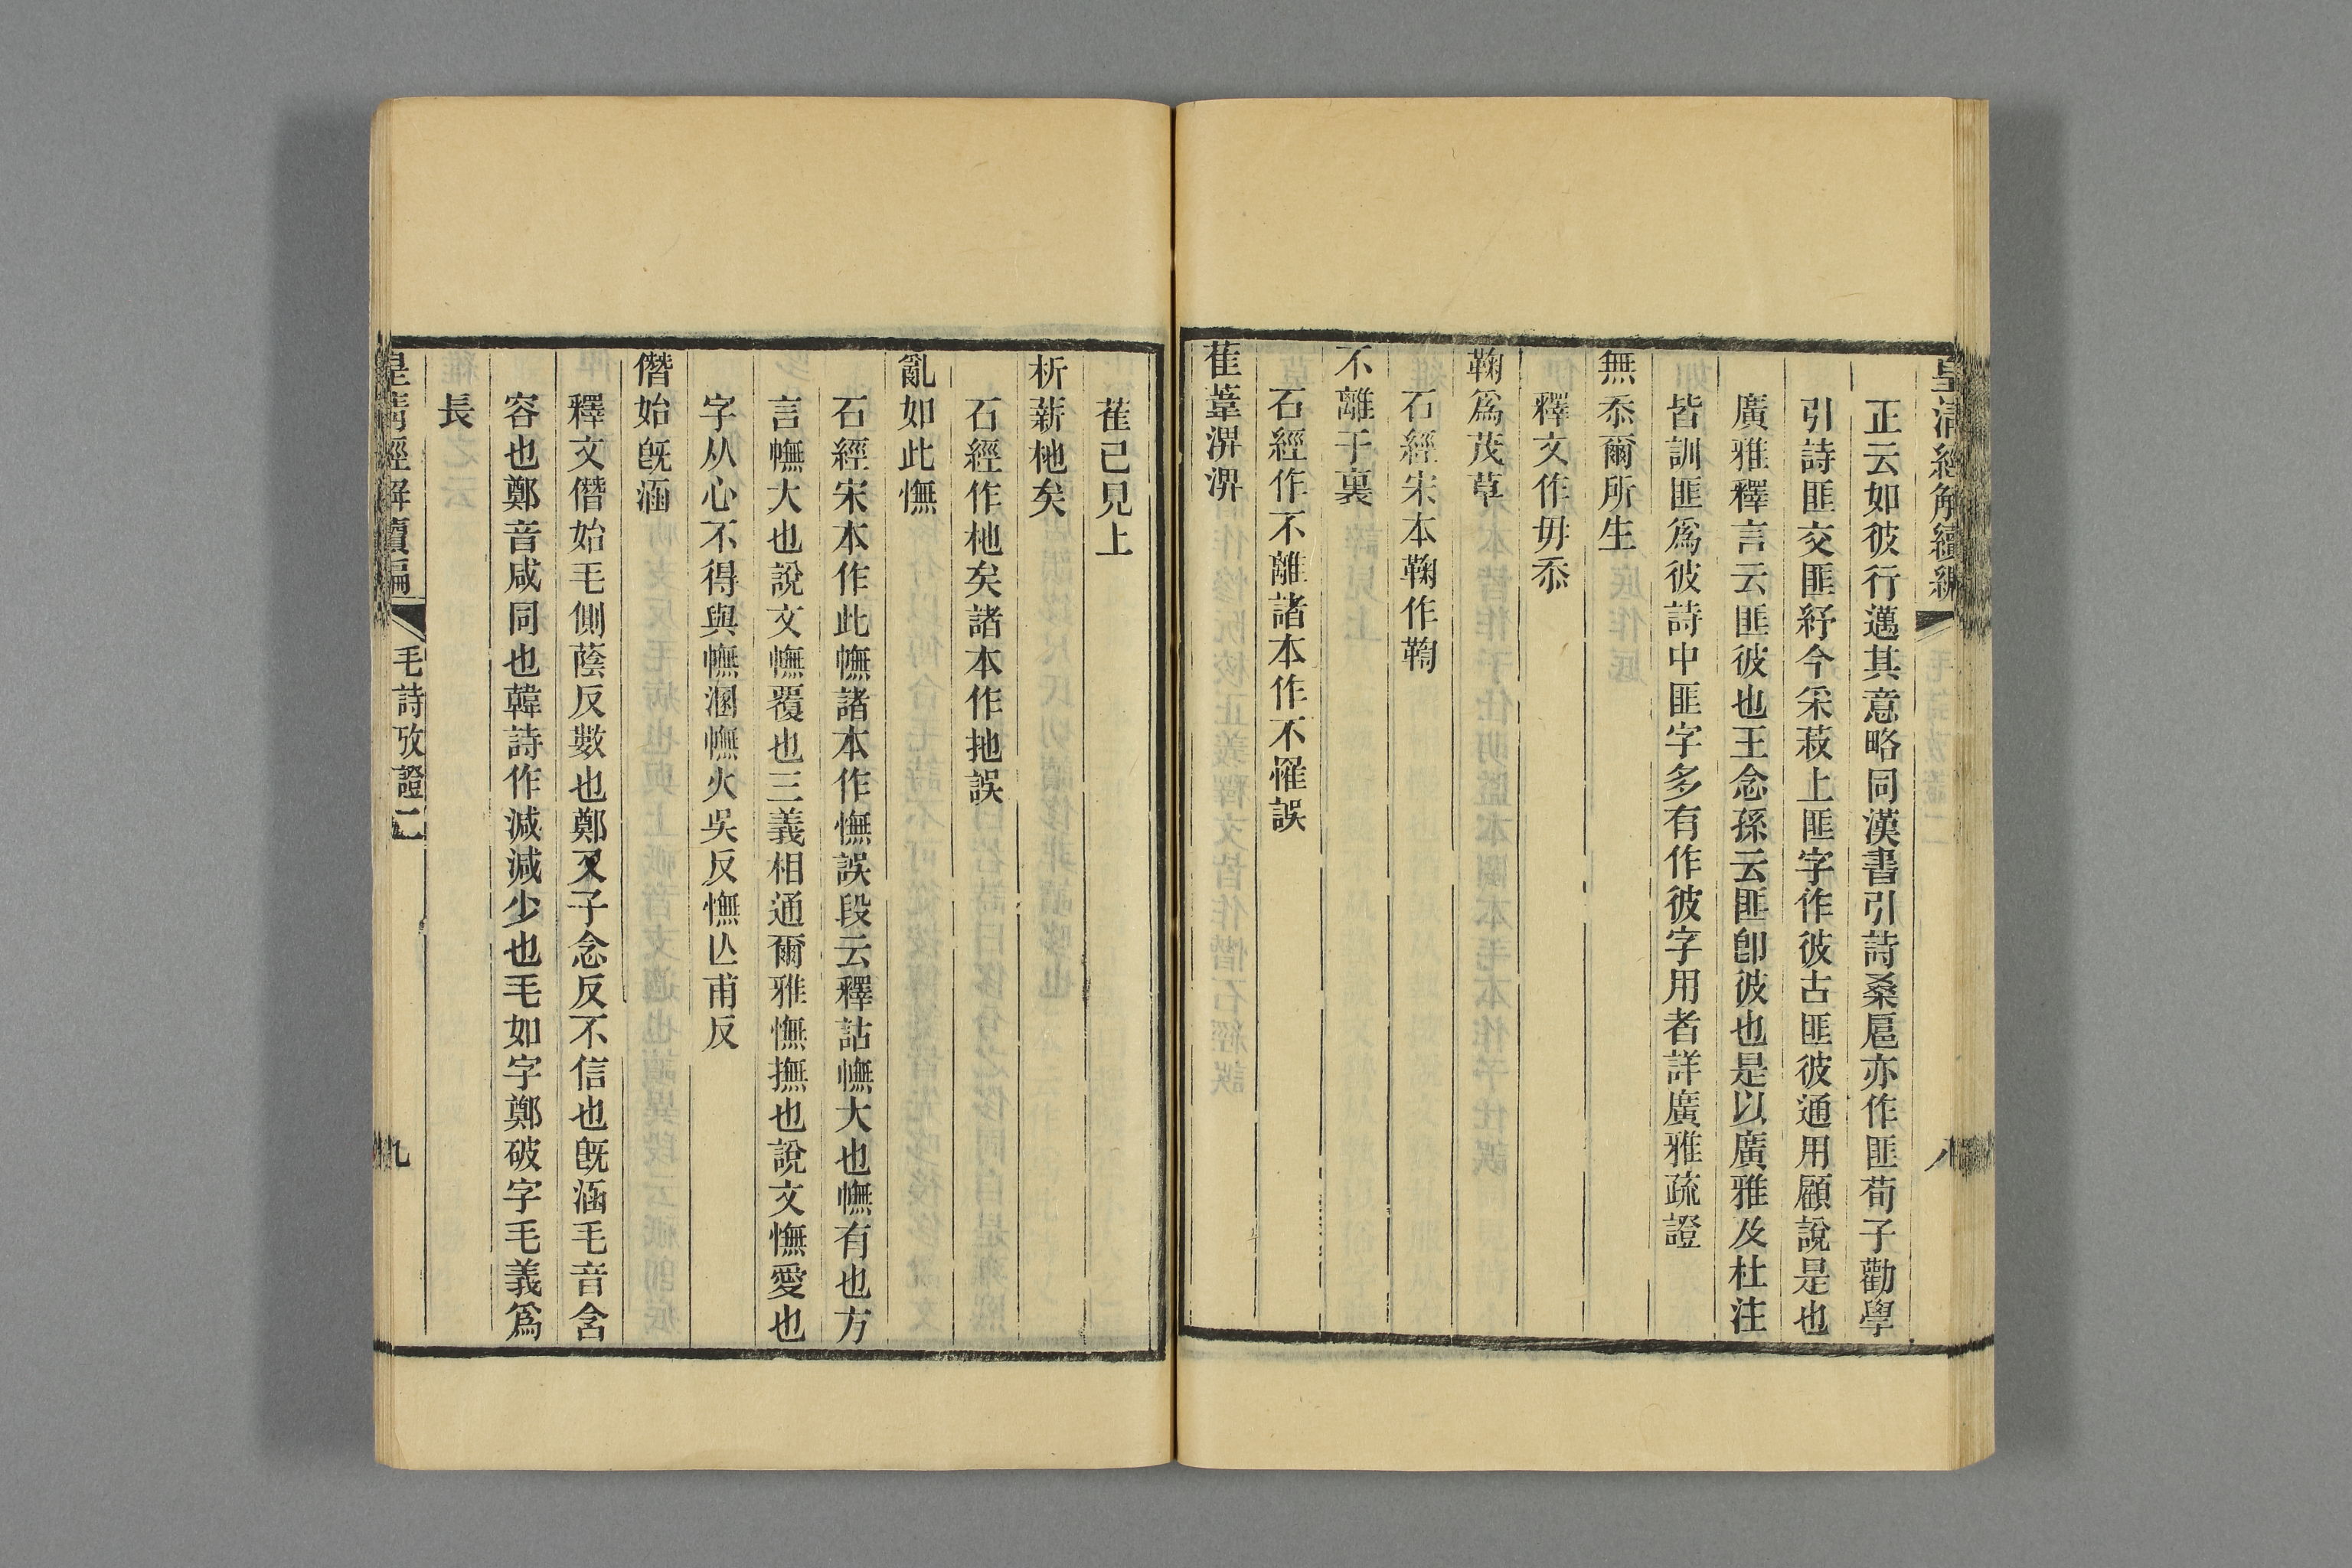 皇清經解續編
八
正云如彼行邁其意略同漢書引詩桑扈亦作匪荀子勸學
引詩匪交匪紓今采菽上匪字作彼古匪彼通用顧說是也
廣雅釋言云匪彼也王念孫云匪卽彼也是以廣雅及杜注
皆訓匪爲彼詩中匪字多有作彼字用者詳廣雅疏證
無忝爾所生
釋文作毋忝
鞠爲茂草
石經宋本鞠作鞫
不離于裏
石經作不離諸本作不罹誤
萑葦淠淠
萑已見上
析薪杝矣
石經作杝矣諸本作扡誤
亂如此憮
石經宋本作此幠諸本作憮誤段云釋詁幠大也幠有也方
言幠大也說文幠覆也三義相通爾雅憮撫也說文憮愛也
字从心不得與幠溷幠火吳反憮亾甫反
僭始旣涵
釋文僭始毛側蔭反數也鄭又子念反不信也旣涵毛音含
容也鄭音咸同也韓詩作減減少也毛如字鄭破字毛義爲
長
皇清經解續編
毛詩攷證二
九